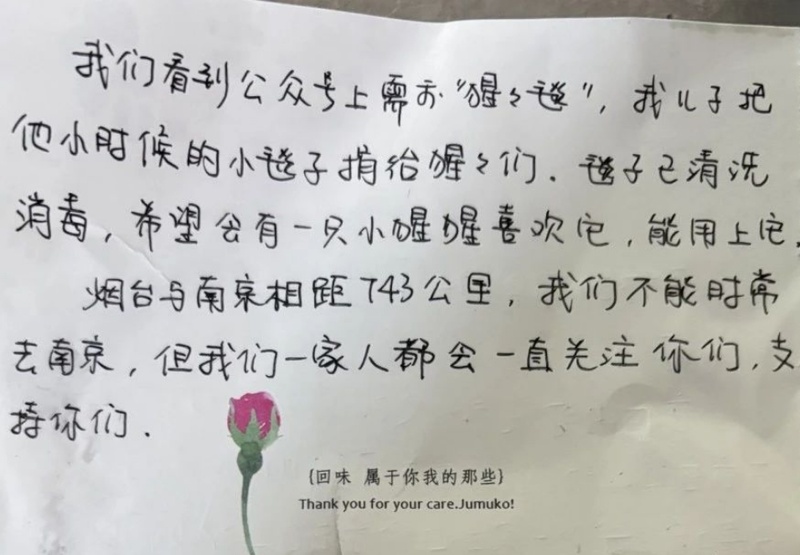 我们看到公众号上需求“猩々毯”，我儿子把
他小时候的小毯子捐给猩々们．毯子已清洗
消毒，希望会有一只小猩猩喜欢它，能用上它，
烟台与南京相距743公里，我们不能时常
去南京，但我们一家人都会一直关注你们，支
持你们．
{回味 属于你我的那些}
Thank you for your care.Jumuko!